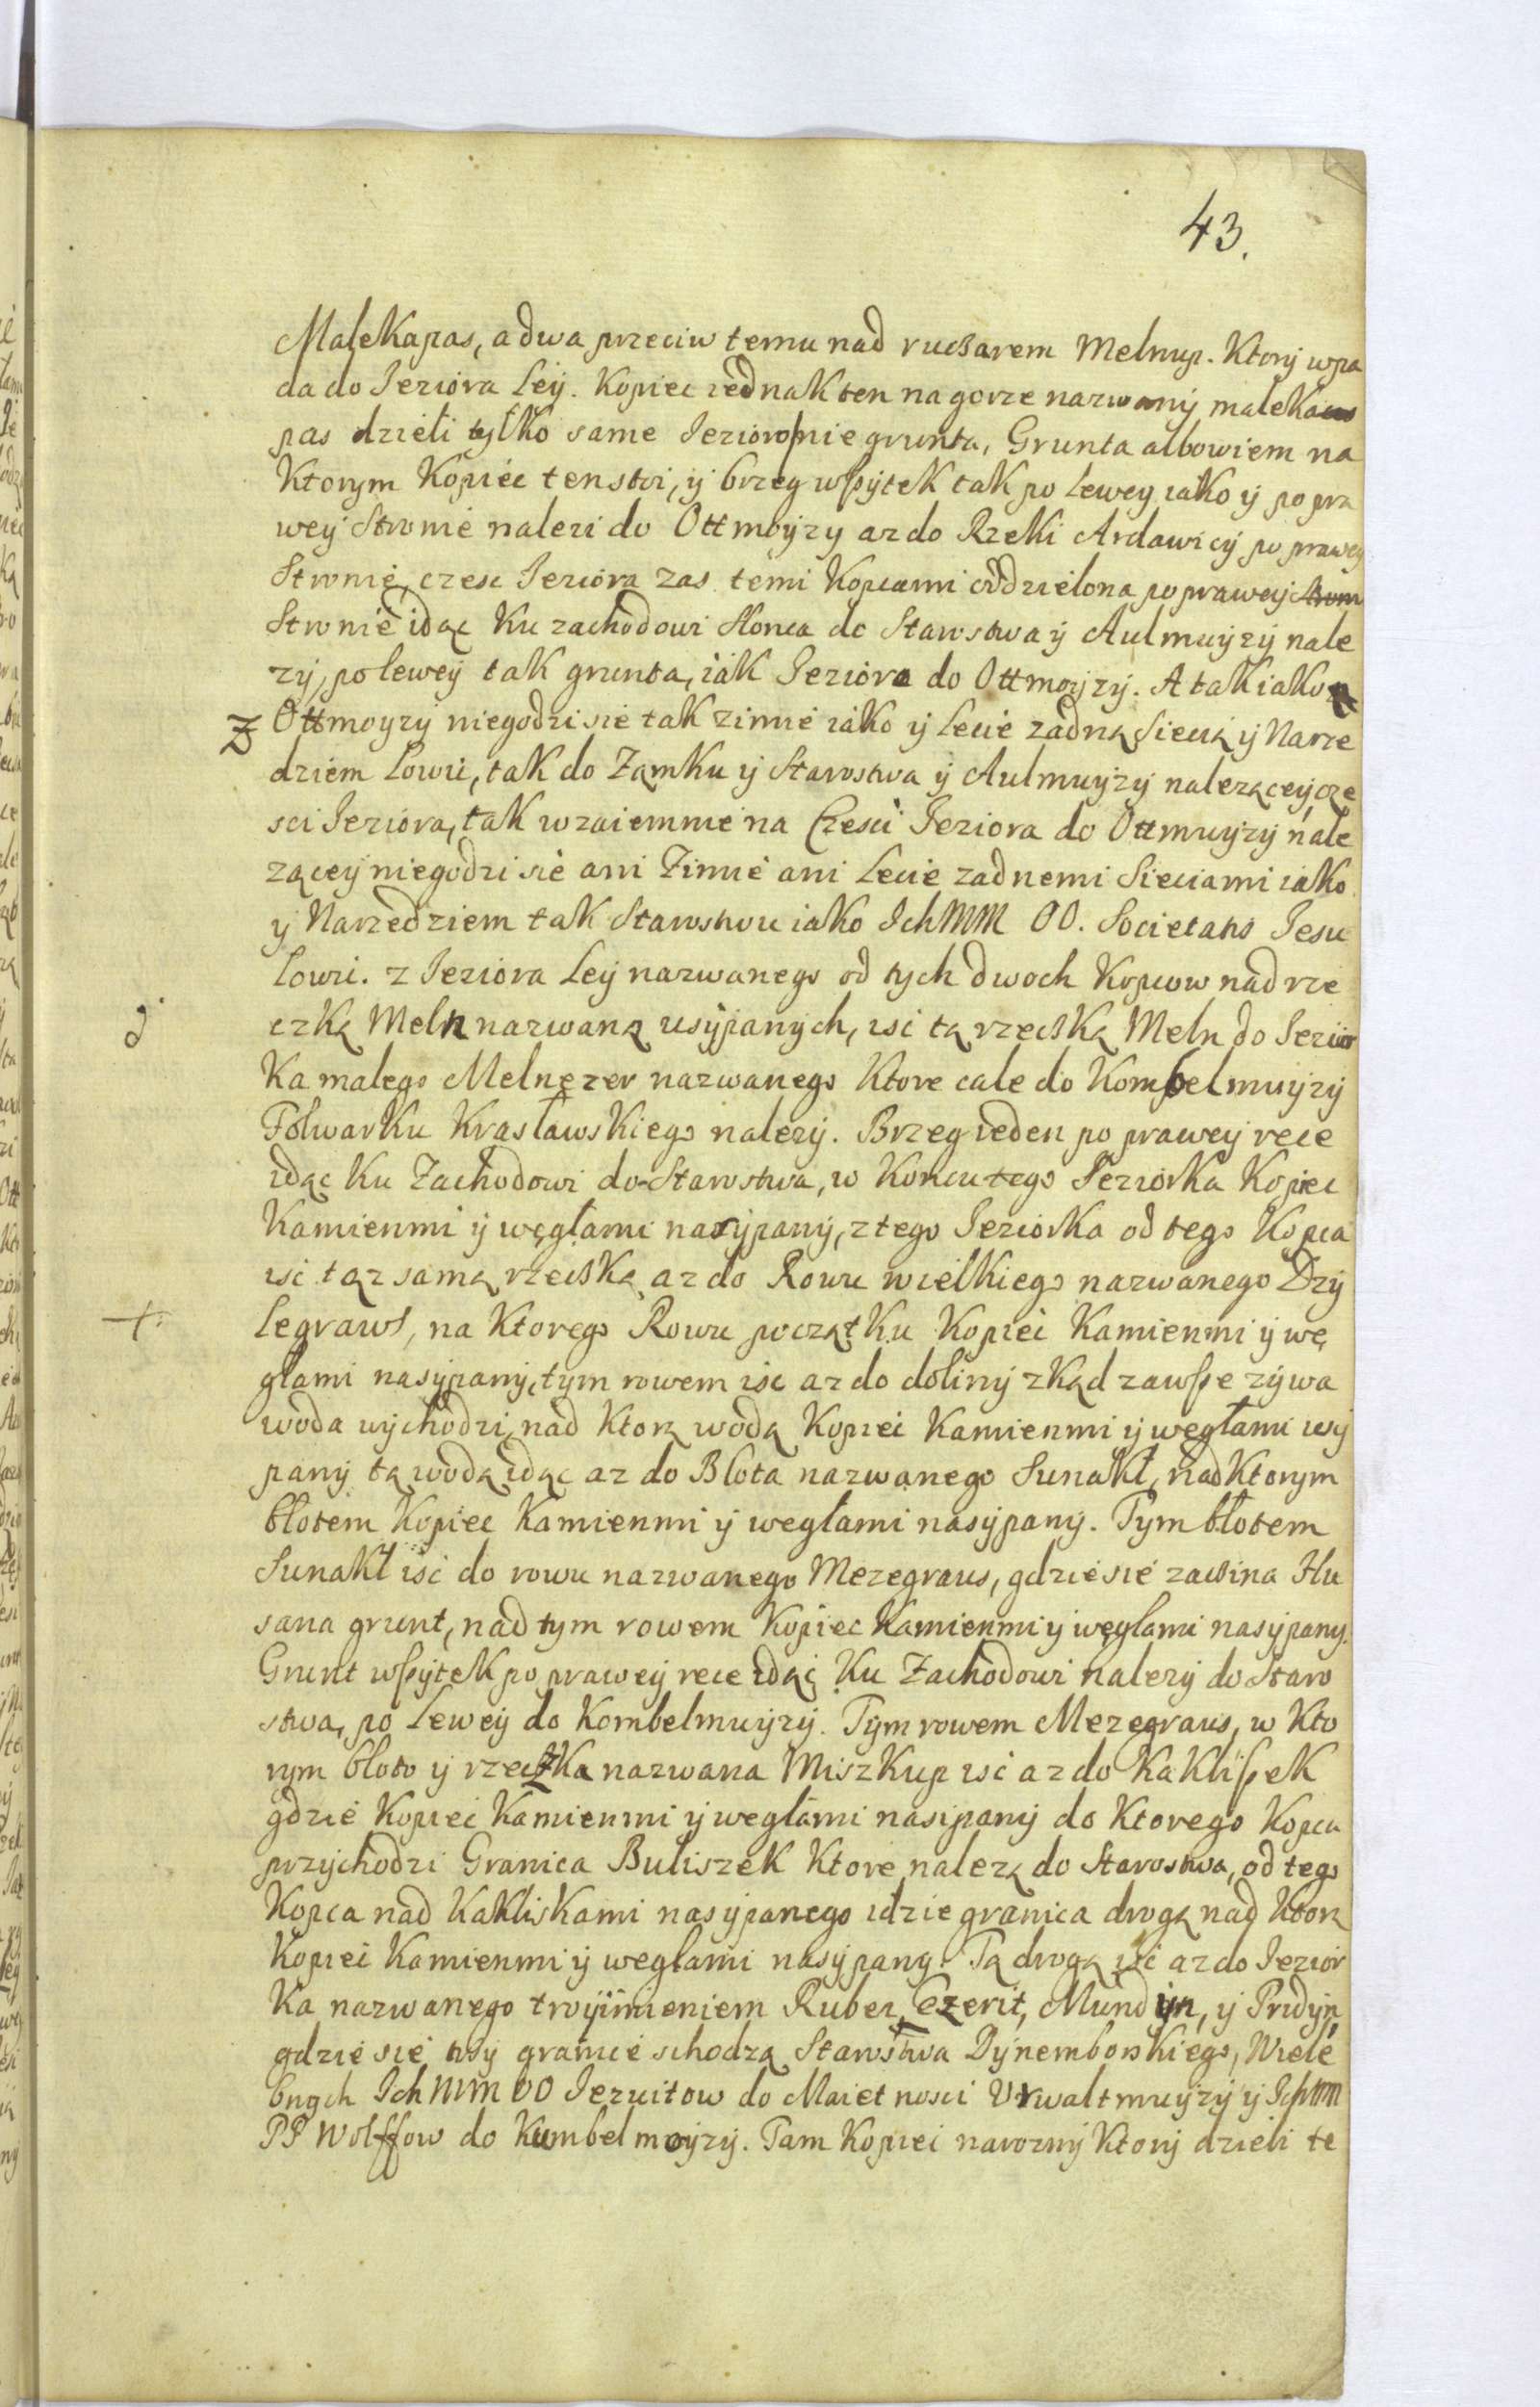 43.
Malekapas, a dwa przeciw temu nad ruczarem Melnup. Ktorÿ wpa
da do Jeziora Leÿ. Kopiec iednak ten na gorze nazwanÿ maleka
pas dzieli tylko same Jezioro nie grunta, Grunta albowiem na
Ktorym Kopiec ten stoi, ÿ brzeg wszÿtek tak po Lewey iako ÿ po pra
weÿ Stronie nalezi do Ottmoÿzy az do Rzeki Ardawicÿ po prawey
Stronie, czesc Jeziora zas temi Kopcami oddzielona po praweÿ strom
Stronie idąc Ku zachodowi Słonca do Starostwa ÿ Aulmuÿzÿ nale
zÿ, po leweÿ tak grunta, iak Jeziora do Ottmoyzÿ. A tak iako z
Z Ottmoyzÿ niegodzi sie tak zimie iako ÿ Lecie zadną Siecią ÿ Narze
dziem Łowic, tak do Zamku ÿ Starostwa ÿ Aulmuÿzÿ nalezącey cze
sci Jeziora, tak wzaiemnie na Czesci Jeziora do Ottmuÿzÿ nale
ząceÿ niegodzi sie ani Zimie ani Lecie zadnemi Sieciami iako
ÿ Narzedziem tak Starostwu iako Ich MM OO. Societatis Jesu
Łowic. z Jeziora Leÿ nazwanego od tych dwoch Kopcow nad rze
czką Meln nazwaną usÿpanych, isc tą rzeczką Meln do Jezior
Ka małego Melnezer nazwanego Ktore cale do Kombelmuyzÿ
Folwarku Krasławskiego nalezÿ. Brzeg ieden po prawey rece
idąc Ku Zachodowi do Starostwa, w Koncu tego Jeziorka Kopiec
Kamienmi ÿ węglami nasÿpanÿ, z tego Jeziorka od tego Kopca
isc tąz samą rzeczką az do Rowu wielkiego nazwanego Dzÿ
+ legraws, na Ktorego Rowu początku Kopiec Kamienmi ÿ wę
glami nasÿpanÿ, tym rowem isc az do dolinÿ zkąd zawsze zÿwa
woda wychodzi, nad Ktorą wodą Kopiec Kamienmi ÿ węglami usÿ
panÿ tą wodą idąc az do Błota nazwanego Sunakl, nad Ktorym
błotem Kopiec Kamienmi ÿ weglami nasÿpanÿ. Tym błotem
Sunakl isc do rowu nazwanego Mezegraus, gdzie sie zaczina Hu
sana grunt, nad tym rowem Kopiec Kamienmi ÿ węglami nasÿpanÿ.
Grunt wszÿtek po prawey rece idąc Ku Zachodowi nalezÿ do Staro
stwa, po Lewey do Kombelmuyzÿ. Tÿm rowem Mezegraus, w Kto
rym błoto ÿ rzeczka nazwana Miszkup isc az do Kakliszek
gdzie Kopiec Kamienmi ÿ weglami nasipanÿ do Ktorego Kopca
przÿchodzi Granica Buliszek Ktore nalezą do Starostwa, od tego
Kopca nad Kakliskami nasÿpanego idzie granica drogą nad Ktorą
Kopiec Kamienmi ÿ weglami nasÿpanÿ. Tą drogą isc az do Jezior
Ka nazwanego troyimieniem Rubez, Ezerit, Mundÿn, ÿ Prudÿn
gdzie sie trzÿ granice schodzą Starostwa Dÿnemborskiego, Wiele
bnych Ich MM OO Jezuitow do Maietnosci Urwaltmuyzÿ ÿ Ich MM
PP Wolffow do Kumbelmoÿzÿ. Tam Kopiec naroznÿ Ktorÿ dzieli te